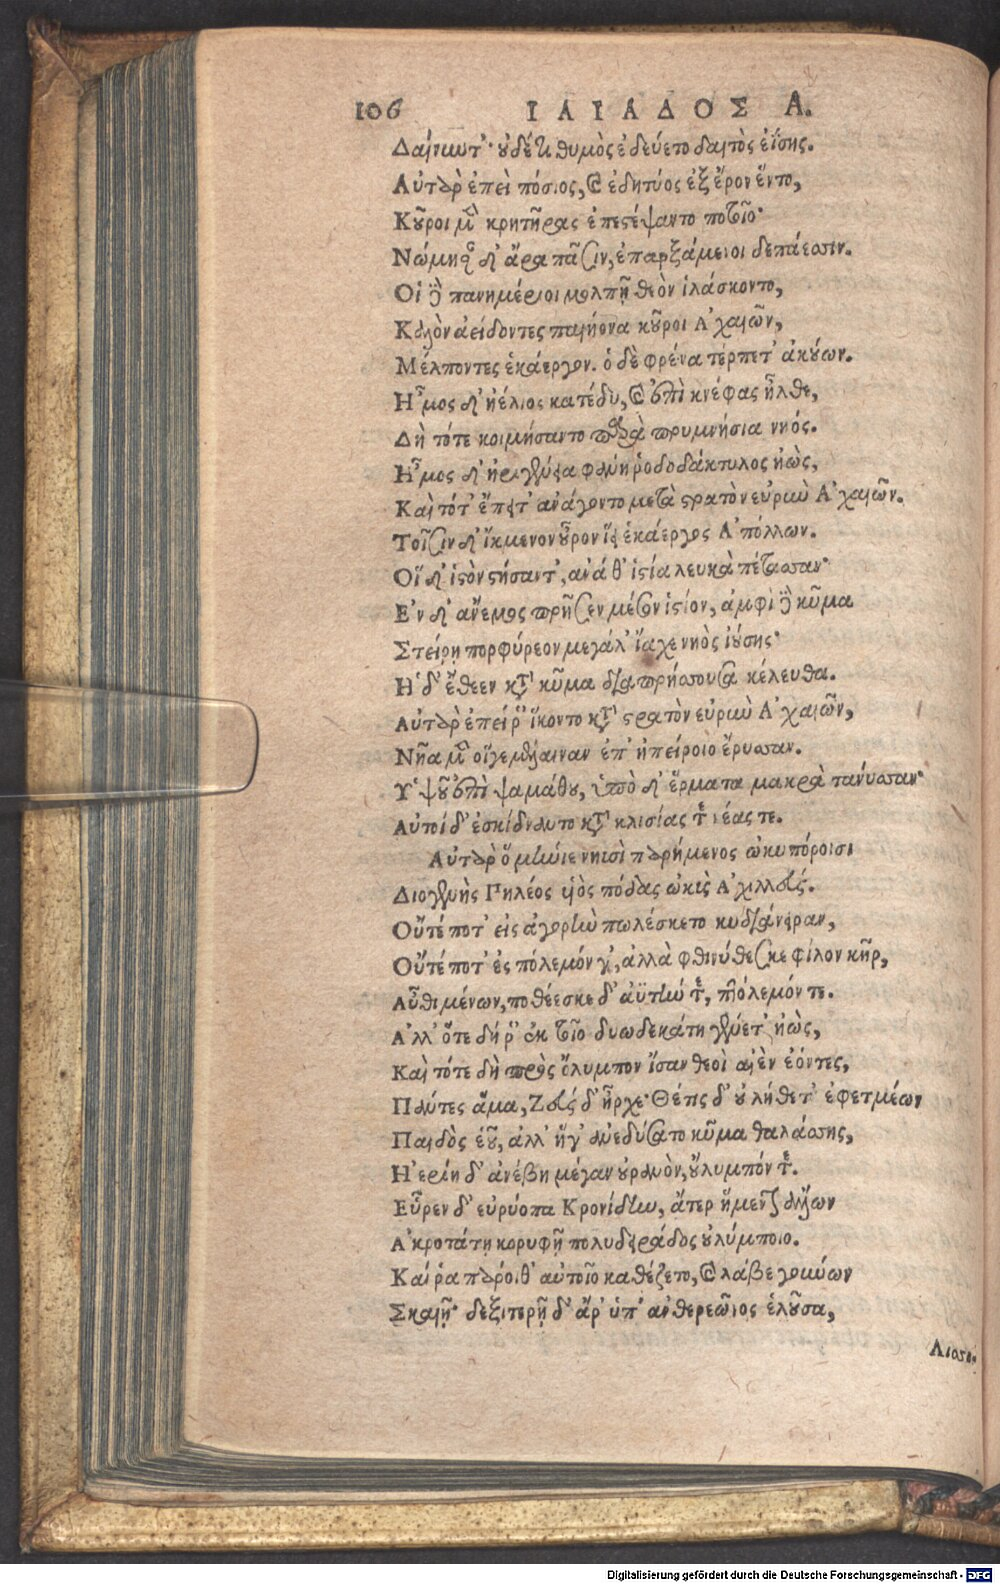 106 ΙΛΙΑΔΟΣ Α.
Δαίνυντ᾽· οὐδέ τι θυμὸς ἐδεύετο δαιτὸς ἐΐσης.
Αὐτὰρ ἐπεὶ πόσιος, καὶ ἐδητύος ἐξ ἔρον ἕντο,
Κοῦροι μὲν κρητῆρας ἐπεστέψαντο ποτοῖο·
Νώμησαν δ᾽ ἄρα πᾶσιν, ἐπαρξάμενοι δεπάεσσιν.
Οἱ δὲ πανημέριοι μολπῇ θεὸν ἱλάσκοντο,
Καλὸν ἀείδοντες παιήονα κοῦροι Ἀχαιῶν,
Μέλποντες ἑκάεργον. ὁ δὲ φρένα τέρπετ᾽ ἀκούων.
Ἦμος δ᾽ ἠέλιος κατέδυ, καὶ ἐπὶ κνέφας ἦλθε,
Δὴ τότε κοιμήσαντο παρὰ πρυμνήσια νηός.
Ἦμος δ᾽ ἠριγένεια φάνη ῥοδοδάκτυλος ἠὼς,
Καὶ τότ᾽ ἔπειτ᾽ ἀνάγοντο μετὰ στρατὸν εὐρὺν Ἀχαιῶν.
Τοῖσιν δ᾽ ἴκμενον οὖρον ἵει ἑκάεργος Ἀπόλλων.
Οἵ δ᾽ ἱστὸν στήσαντ᾽, ἀνά θ᾽ ἱστία λευκὰ πέτασσαν·
Ἐν δ᾽ ἄνεμος πρῆσεν μέσον ἱστίον, ἀμφὶ δὲ κῦμα
Στείρῃ πορφύρεον μεγάλ᾽ ἴαχε νηὸς ἰούσης·
Ἡ δ᾽ ἔθεεν κατὰ κῦμα διαπρήσσουσα κέλευθα.
Αὐτὰρ ἐπεί ῥ᾽ ἵκοντο κατὰ στρατὸν εὐρὺν Ἀχαιῶν,
Νῆα μὲν οἵγε μέλαιναν ἐπ᾽ ἠπείροιο ἔρυσσαν.
Ὑψοῦ ἐπὶ ψαμάθου, ὑπὸ δ᾽ ἕρματα μακρὰ τάνυσσαν·
Αὐτοί δ᾽ ἐσκίδναντο κατὰ κλισίας τε νέας τε.
Αὐτὰρ ὃ μήνιε νηυσὶ παρήμενος ὠκυπόροισι
Διογενὴς Πηλέος υἱὸς πόδας ὠκὺς Ἀχιλλεύς.
Οὔτέ ποτ᾽ εἰς ἀγορὴν πωλέσκετο κυδιάνειραν,
Οὔτέ ποτ᾽ ἐς πόλεμόν γ᾽, ἀλλὰ φθινύθεσκε φίλον κῆρ,
Αὖθι μένων, ποθέεσκε δ᾽ ἀϋτήν τε, πτόλεμόν τε.
Ἀλλ᾽ ὅτε δή ῥ᾽ ἐκ τοῖο δυωδεκάτη γένετ᾽ ἠὼς,
Καὶ τότε δὴ πρὸς ὄλυμπον ἴσαν θεοὶ αἰὲν ἐόντες,
Πάντες ἅμα, Ζεύς δ᾽ ἦρχε· Θέτις δ᾽ οὐ λήθετ᾽ ἐφετμέων
Παιδὸς ἑοῦ, ἀλλ᾽ ἥγ᾽ ἀνεδύσατο κῦμα θαλάσσης,
Ἠερίη δ᾽ ἀνέβη μέγαν οὐρανὸν, οὔλυμπόν τε.
Εὗρεν δ᾽ εὐρύοπα Κρονίδην, ἄτερ ἥμενον ἄλλων
Ἀκροτάτῃ κορυφῇ πολυδειράδος οὐλύμποιο.
Καί ῥα πάροιθ᾽ αὐτοῖο καθέζετο, καὶ λάβε γούνων
Σκαιῇ· δεξιτερῇ δ᾽ ἄρ᾽ ὑπ᾽ ἀνθερεῶνος ἑλοῦσα,
Λισσο-
Digitalisierung gefördert durch die Deutsche Forschungsgemeinschaft - DFG